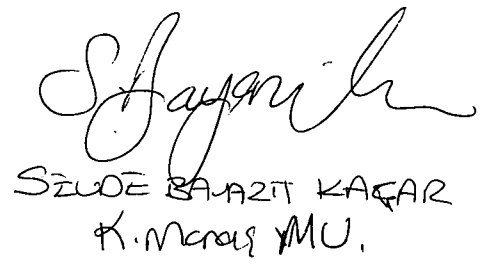 SEVDE BAYAZIT KAÇAR
K.Maraş MU.